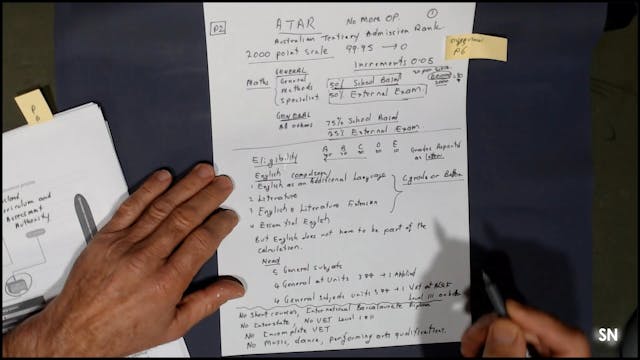 P2
ATAR No More OP. 1
Australian Tertiary Admission Rank
2000 point scale 99.95 → 0
Increments 0.05
P6
Maths GENERAL
General
Methods
Specialist
50% School Based
50% External Exam.
GENERAL
All others 75% School Based
25% External Exam.
A B C D E
Eligibility Grades Reported as letter
English compulsory
1 English as an Additional Language
2 Literature
3 English & Literature Extension
4 Essential English
C grade or Better
But English does not have to be part of the
calculation.
Need
5 General subjects
4 General at Units 3+4 + 1 Applied
4 General Subjects units 3+4 + 1 Vet at
Level III or
No Short courses, International Baccalaureate Diploma
No Interstate, No VET Level I or II
No Incomplete VET
No Music, dance, performing arts qualifications.
Curriculum and
Assessment
Authority
SN